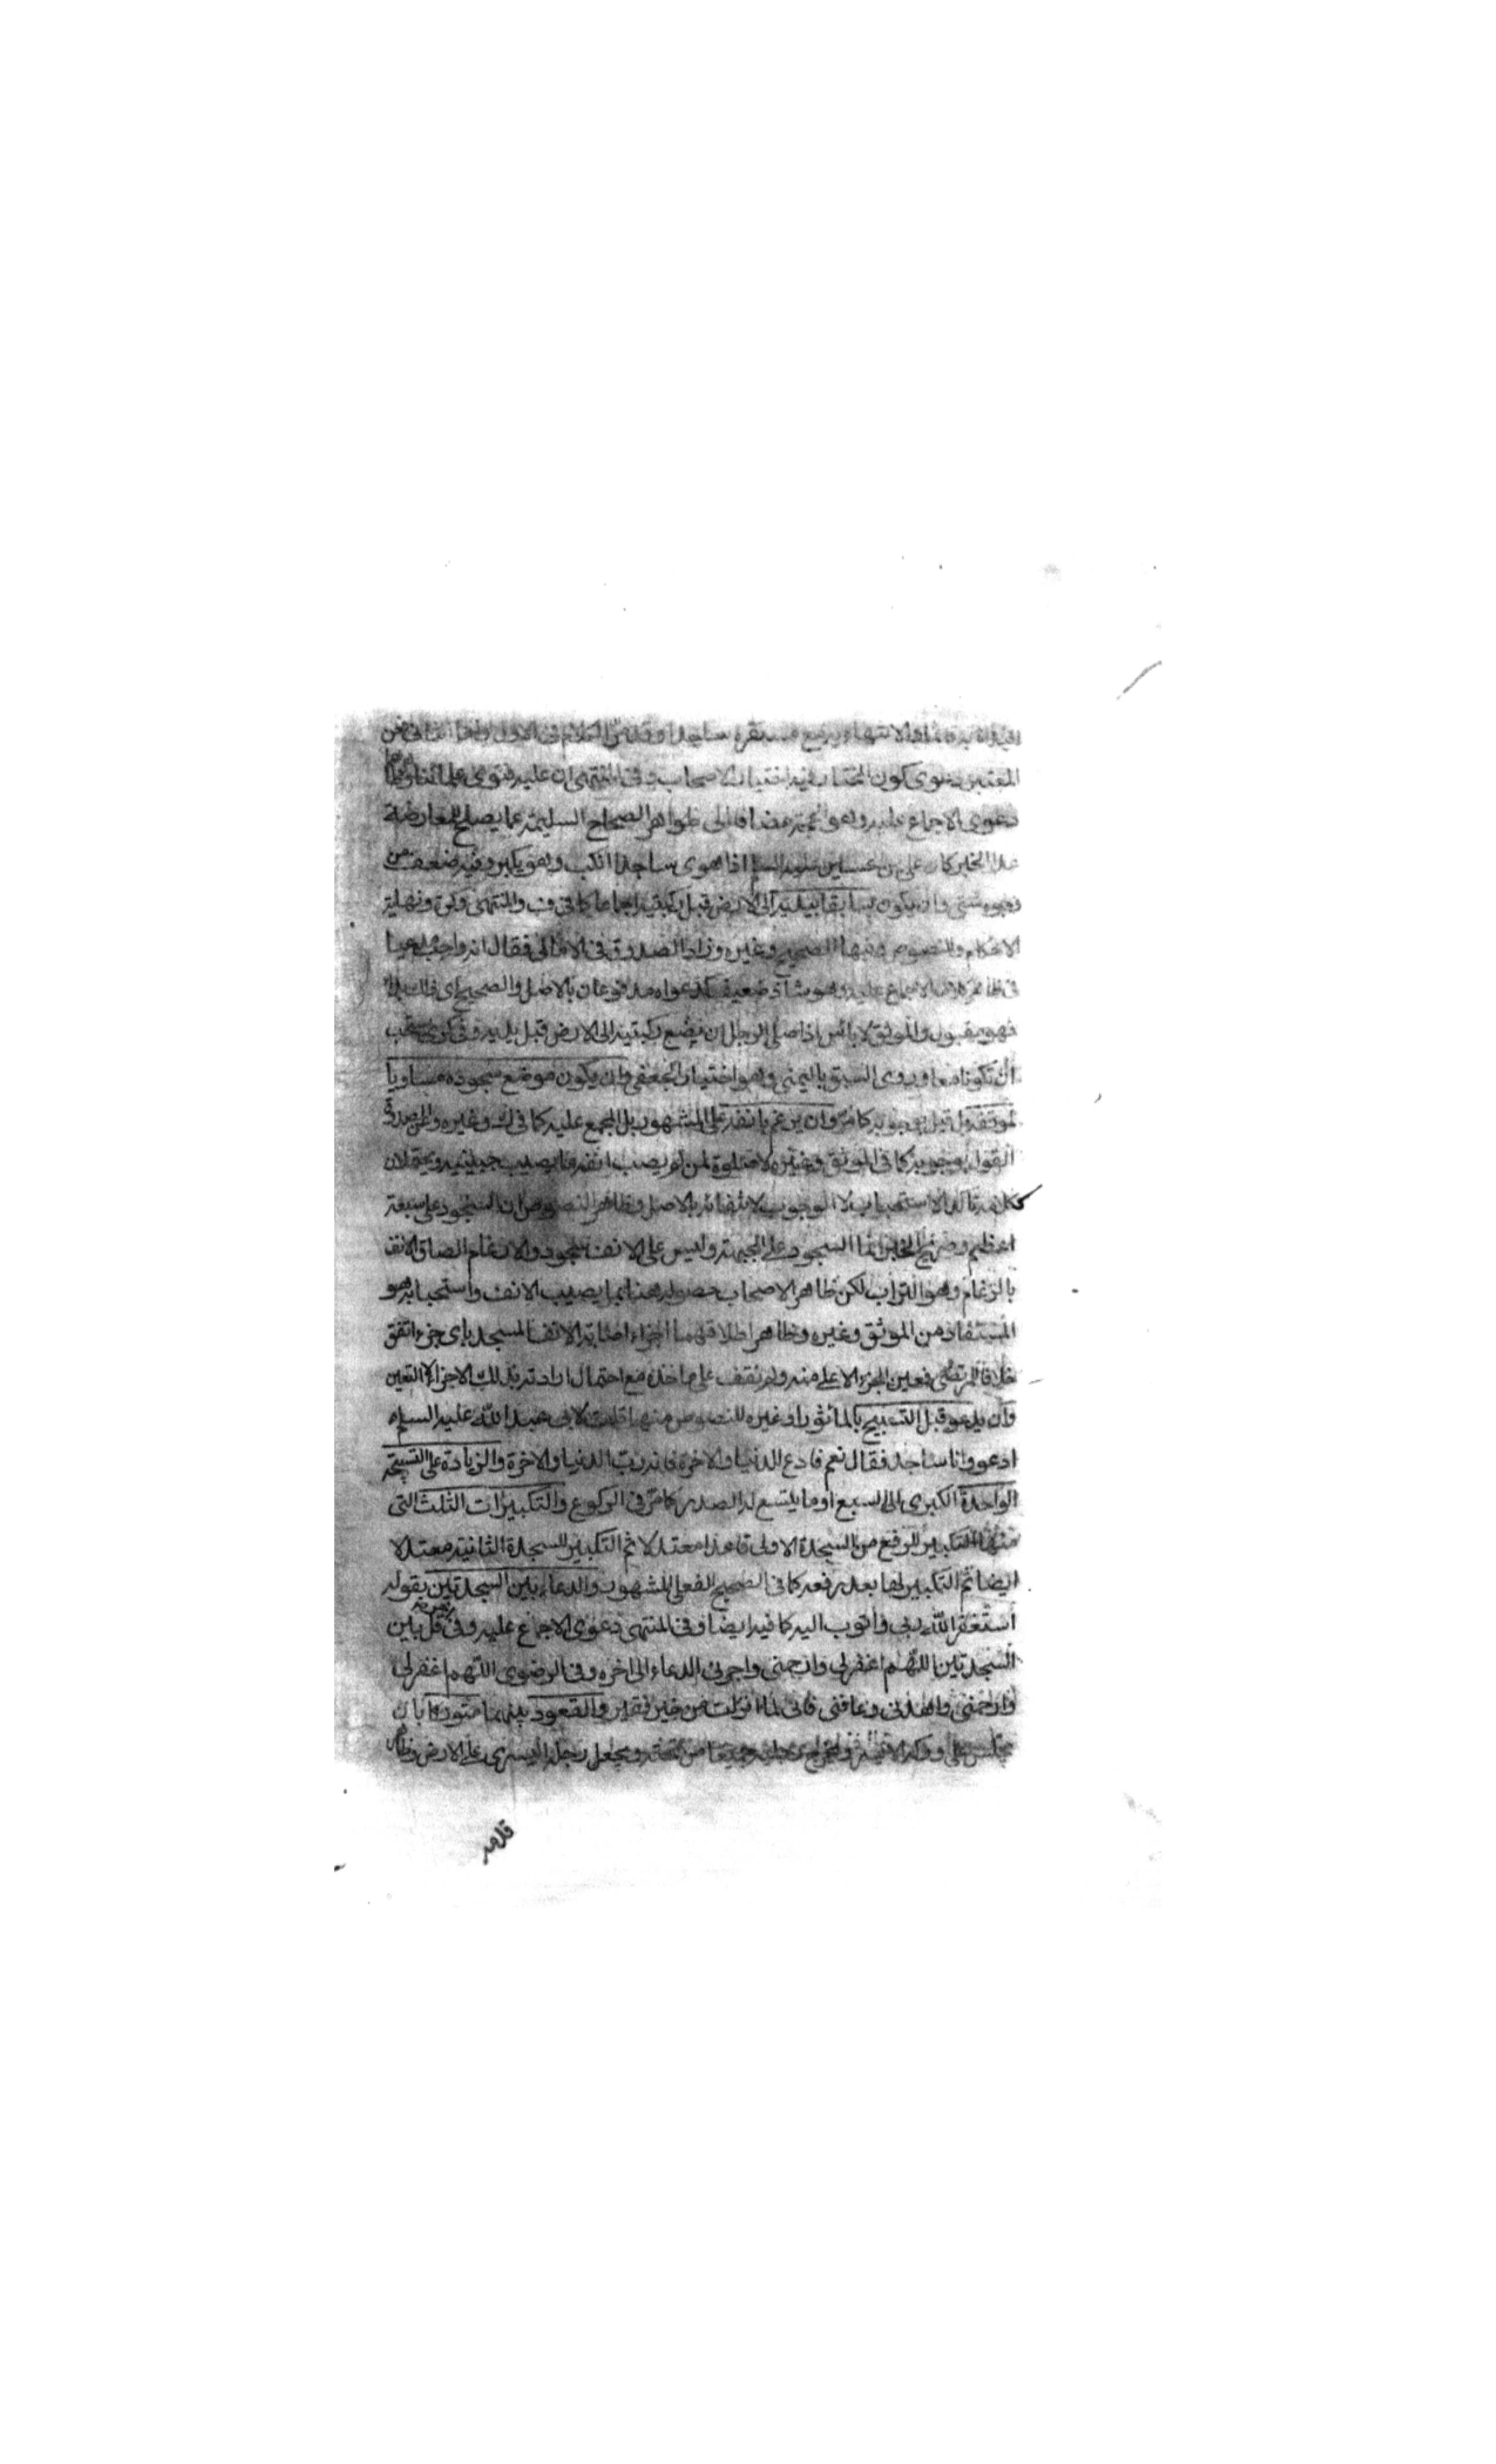 الانتهاء مع مستقره ساجدا وقد مر الكلام فى الاول واما الثانى فعن
المعتبر دعوى كون المختار فيه اختيار الاصحاب وفى المنتهى ان عليه فتوى علمائنا
دعوى الاجماع عليه وهو الحجة مضافا الى ظواهر الصحاح السليمة عما يصلح للمعارضة
عدا الخبر كان على بن حسين عليه السلم اذا هوى ساجدا انكب وهو يكبر وفيه ضعف من
وجوه شتى وان يكون سابقا بيديه الى الارض قبل ركبتيه اجماعا كما فى ف والمنتهى وكرى ونهاية
الاحكام والنصوص منها الصحيح وغيره وزاد الصدوق فى الامالى فقال انه واجب مدعيا
فى ظاهر كلامه الاجماع عليه وهو شاذ ضعيف كدعواه مدفوعان بالاصل والصحيح اى ذلك بدأ
فهو مقبول والموثق لا باس اذا صلى الرجل ان يضع ركبتيه الى الارض قبل يديه وفى كرى يستحب
ان تكونا معا وروى السبق باليمنى وهو اختيار الجعفى وان يكون موضع سجوده مساويا
لموقفه بل قيل بوجوبه كما مر وان يرغم بانفه على المشهور بل المجمع عليه كما فى ك وغيره وللصدوق
القول بوجوبه كما فى الموثق وغيره لا صلوة لمن لم يصب انفه ما يصيب جبينيه ويحتملان
كلامه تاكد الاستحباب لا الوجوب لانتفائه بالاصل وظاهر النصوص ان السجود على سبعة
اعظم وصريح الخبر انما السجود على الجبهة وليس على الانف سجود والارغام الصاق الانف
بالرغام وهو التراب لكن ظاهر الاصحاب حصوله هنا بما يصيب الانف واستحبابه هو
المستفاد من الموثق وغيره وظاهر اطلاقهما اجزاء اصابة الانف المسجد باى جزء اتفق
خلافا للمرتضى فعين الجزء الاعلى منه ولم نقف على ماخذه مع احتمال ارادته بذلك الاجزاء لا التعين
وان يدعو قبل التسبيح بالماثور او غيره للنصوص منها قلت لابى عبد الله عليه السلام
ادعو وانا ساجد فقال نعم فادع للدنيا والاخرة فانه رب الدنيا والاخرة والزيادة على التسبيحة
الواحدة الكبرى الى السبع او ما يتسع له الصدر كما مر فى الركوع والتكبيرات الثلث التى
منها التكبير للرفع من السجدة الاولى قاعدا معتدلا ثم التكبير للسجدة الثانية معتدلا
ايضا ثم التكبير لها بعد رفعه كما فى الصحيح الفعلى المشهور والدعاء بين السجدتين بقوله
استغفر الله ربى واتوب اليه كما فيه ايضا وفى المنتهى دعوى الاجماع عليه وفى قل بين
السجدتين اللهم اغفر لى وارحمنى واجرنى الدعاء الى اخره وفى الرضوى اللهم اغفر لى
وارحمنى واهدنى وعافنى فانى لما انزلت من خير فقير والقعود بينهما متوركا بان
يجلس على وركه الايسر ويخرج رجليه جميعا من تحته ويجعل رجله اليسرى على الارض وظاهر
قدمه